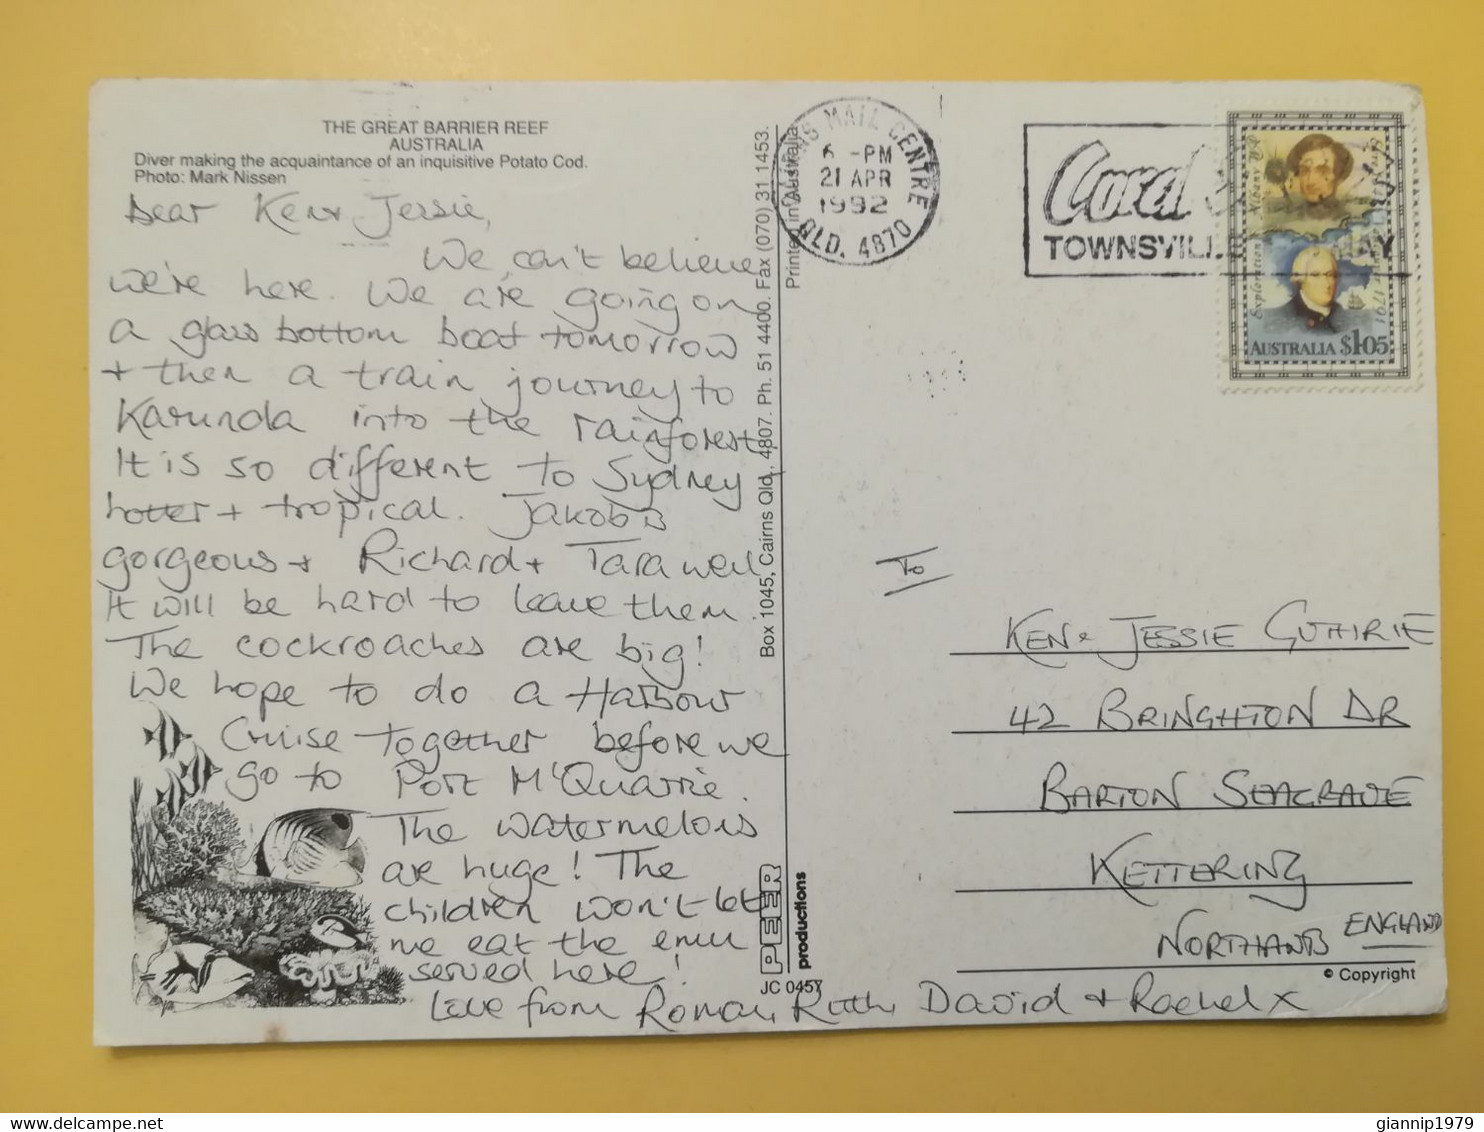 THE GREAT BARRIER REEF
AUSTRALIA
Diver making the acquaintance of an inquisitive Potato Cod.
Photo: Mark Nissen
Dear Ken + Jessie,
We can't believe
we're here. We are going on
a glass bottom boat tomorrow
+ then a train journey to
Karunda into the rainforest.
It is so different to Sydney
hotter + tropical. Jakob is
gorgeous + Richard + Tara well
It will be hard to leave them.
The cockroaches are big!
We hope to do a Harbour
Cruise together before we
go to Port M'Quarrie.
The watermelons
are huge! The
children won't let
me eat the emu
served here!
Love from Roman, Ruth, David + Rachel x
Box 1045, Cairns Qld, 4807. Ph. 51 4400. Fax (070) 31 1453.
Printed in Australia
PEER
productions
JC 0457
CAIRNS MAIL CENTRE
6 -PM
21 APR
1992
QLD. 4870
Coral
TOWNSVILLE
Exploration Albany
1791
AUSTRALIA $1.05
To
KEN + JESSIE GUTHRIE
42 BRINGHTON DR
BARTON SEAGRAVE
KETTERING
NORTHANTS ENGLAND
© Copyright
giannip1979